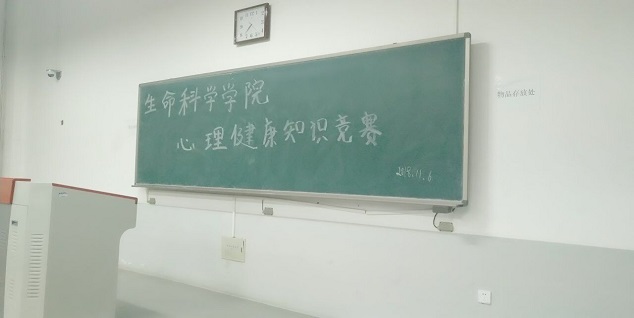 生命科学学院
心理健康知识竞赛
2018.11.6
物品存放处